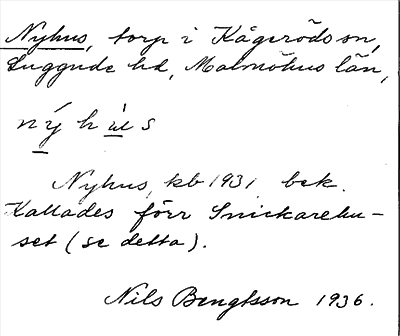 Nyhus, torp i Kågeröds sn,
Luggude hd, Malmöhus län,
nýhùs
Nyhus, kb 1931 bek.
Kallades förr Snickarehu-
set (se detta).
Nils Bengtsson 1936.